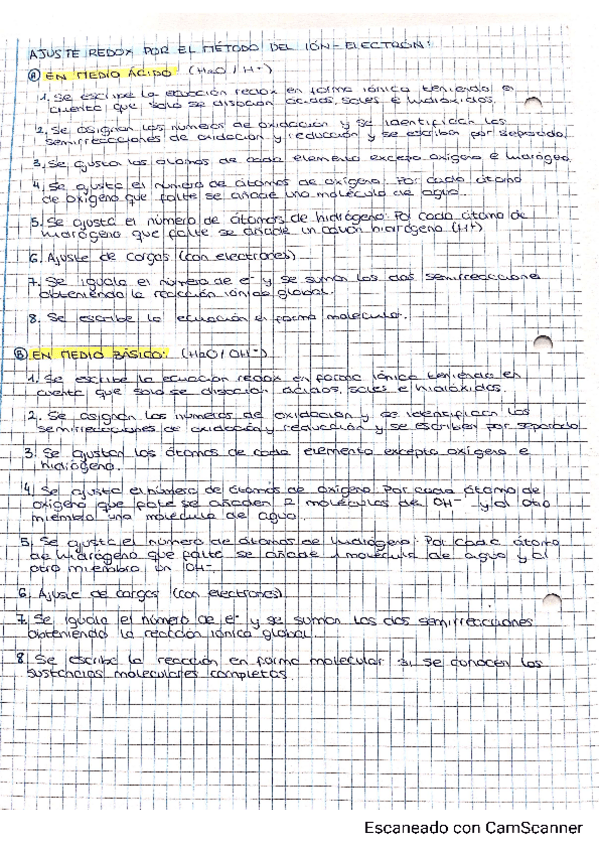 AJUSTE REDOX POR EL MÉTODO DEL IÓN-ELECTRÓN:
Ⓐ EN MEDIO ÁCIDO (H2O / H+)
1. Se escribe la ecuación redox en forma iónica teniendo en
cuenta que solo se disocian ácidos, sales e hidróxidos.
2. Se asignan los números de oxidación y se identifican las
semirreacciones de oxidación y reducción y se escriben por separado.
3. Se ajustan los átomos de cada elemento excepto oxígeno e hidrógeno.
4. Se ajusta el número de átomos de oxígeno: Por cada átomo
de oxígeno que falte se añade una molécula de agua.
5. Se ajusta el número de átomos de hidrógeno: Por cada átomo de
hidrógeno que falte se añade un catión hidrógeno (H+)
6. Ajuste de cargas (con electrones)
7. Se iguala el número de e- y se suman las dos semirreacciones
obteniendo la reacción iónica global.
8. Se escribe la ecuación en forma molecular.
Ⓑ EN MEDIO BÁSICO: (H2O / OH-)
1. Se escribe la ecuación redox en forma iónica teniendo en
cuenta que solo se disocian ácidos, sales e hidróxidos.
2. Se asignan los números de oxidación y se identifican las
semirreacciones de oxidación y reducción y se escriben por separado
3. Se ajustan los átomos de cada elemento excepto oxígeno e
hidrógeno.
4. Se ajusta el número de átomos de oxígeno: Por cada átomo de
oxígeno que falte se añaden 2 moléculas de OH- y al otro
miembro una molécula de agua.
5. Se ajusta el número de átomos de hidrógeno: Por cada átomo
de hidrógeno que falte se añade 1 molécula de agua y al
otro miembro un OH-.
6. Ajuste de cargas (con electrones)
7. Se iguala el número de e- y se suman las dos semirreacciones
obteniendo la reacción iónica global.
8. Se escribe la reacción en forma molecular si se conocen las
sustancias moleculares completas.
Escaneado con CamScanner